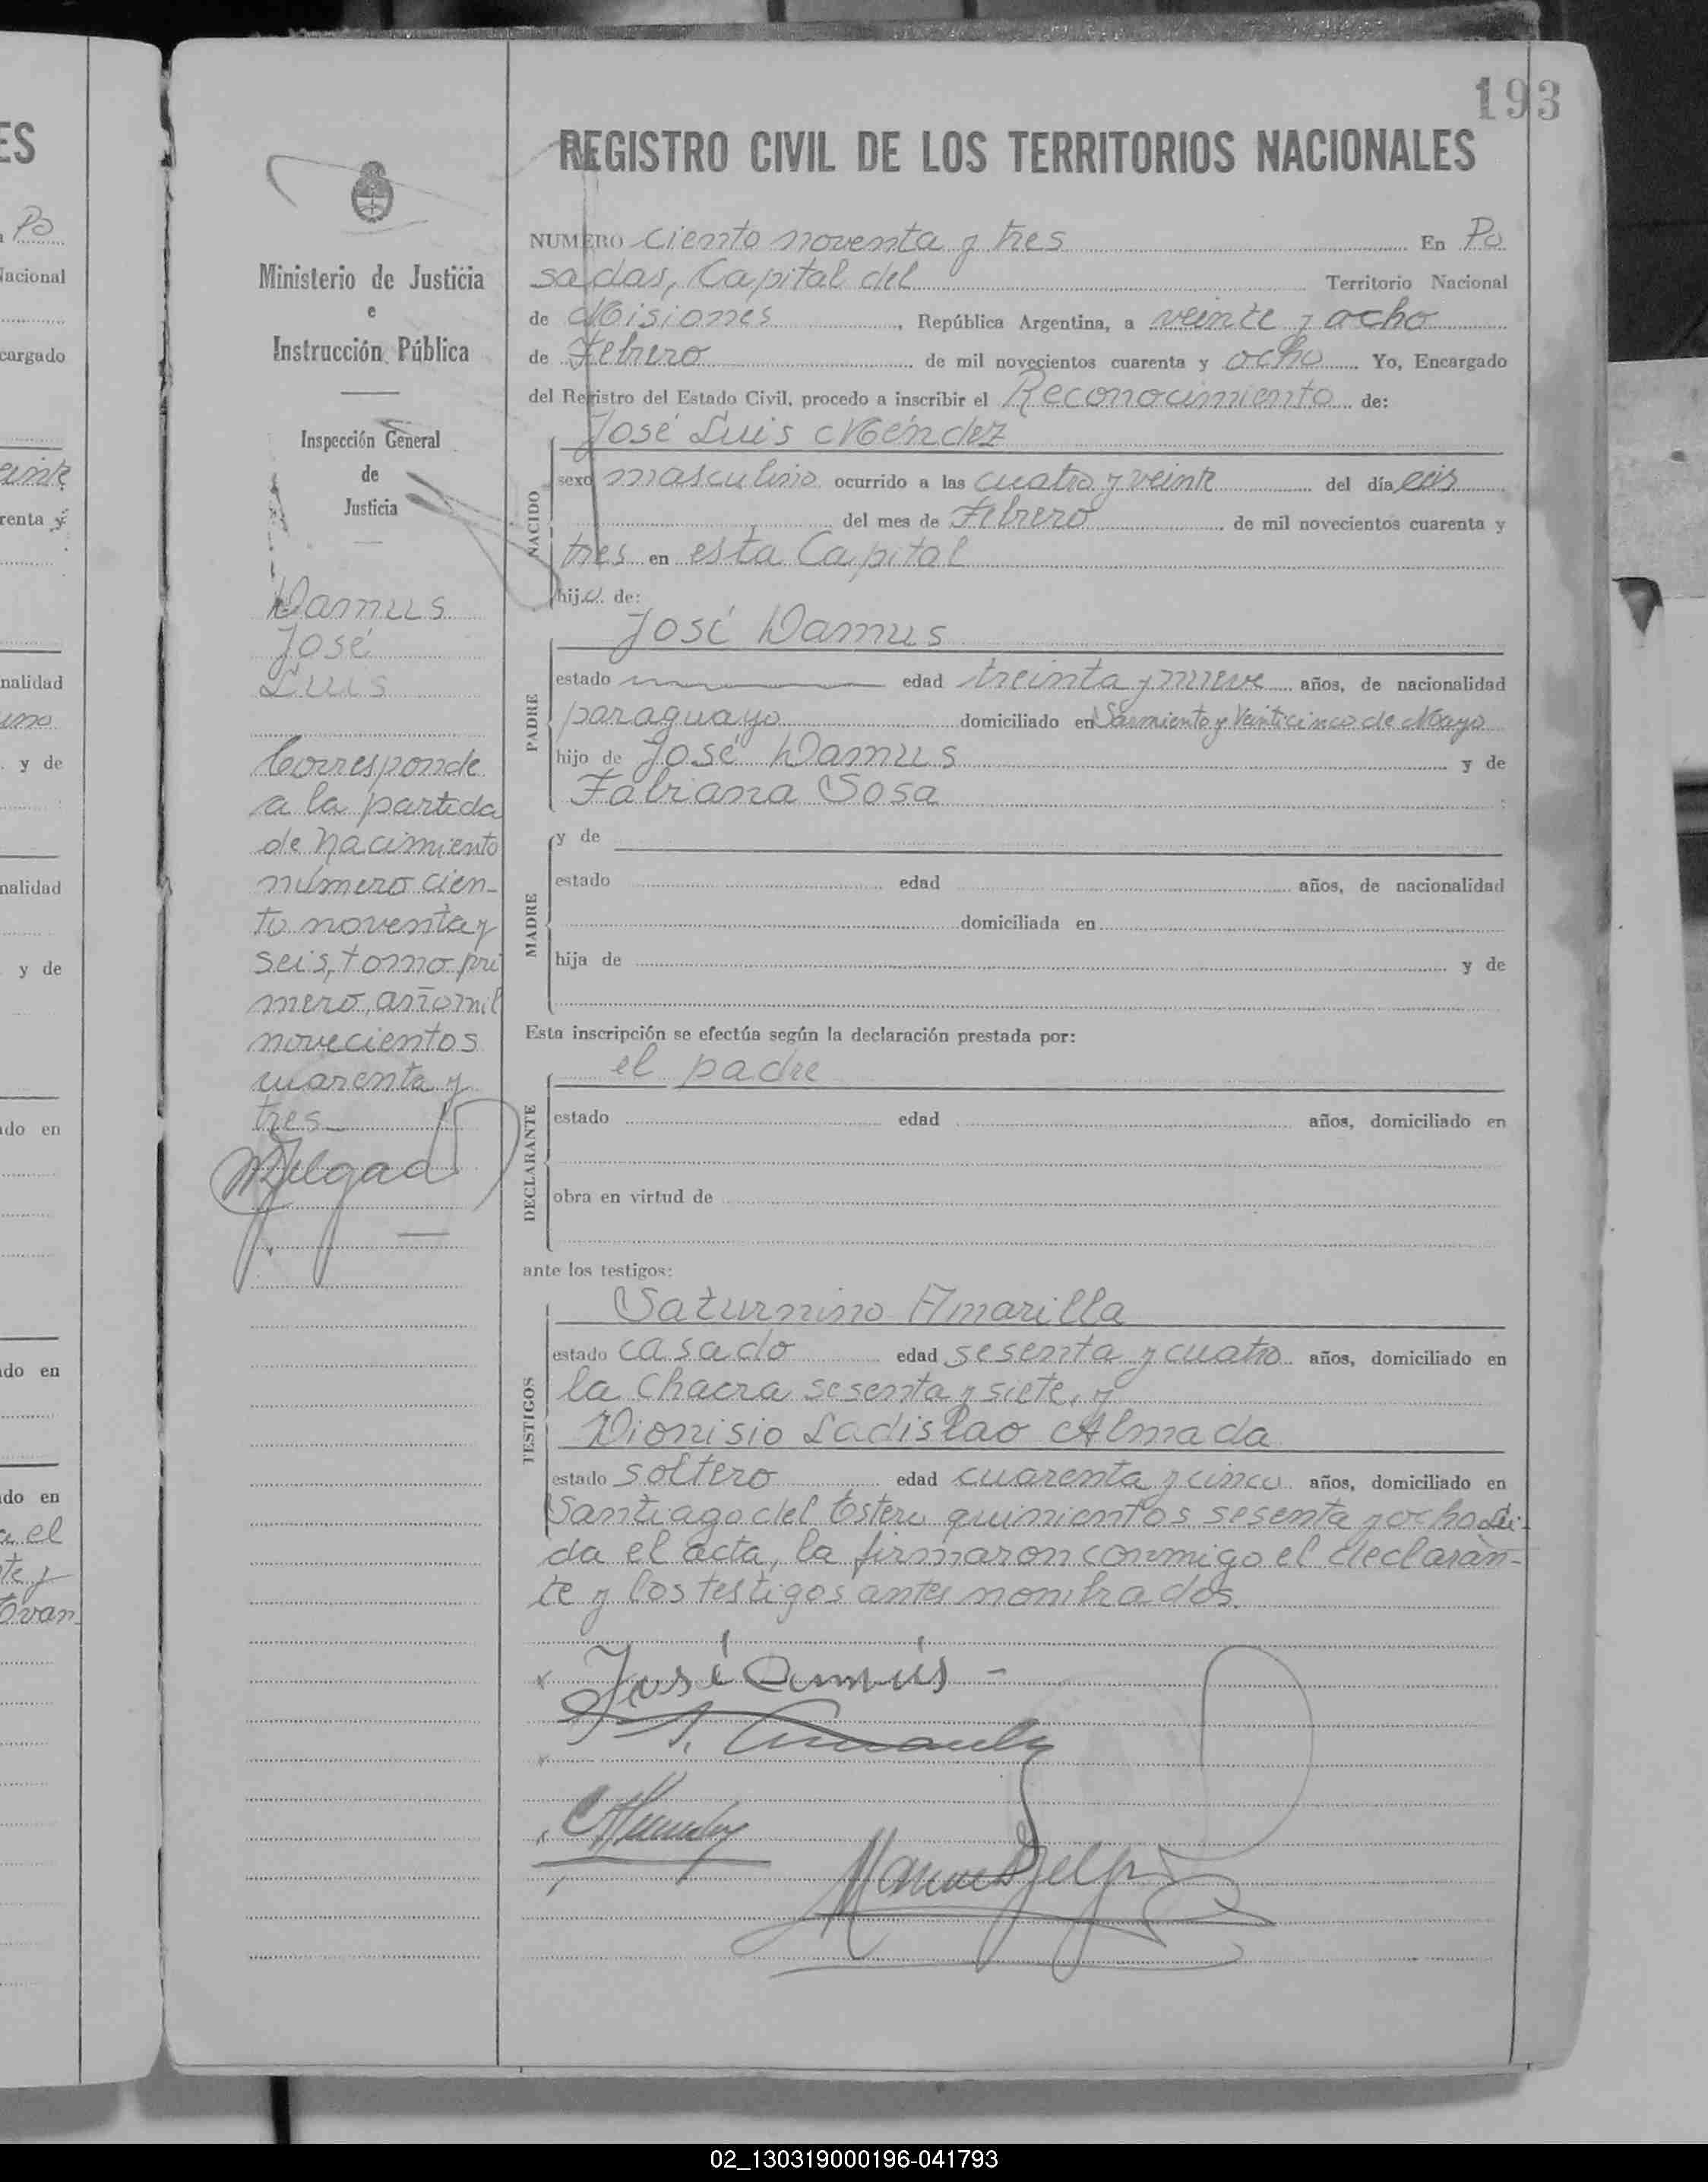 193
REGISTRO CIVIL DE LOS TERRITORIOS NACIONALES
NUMERO ciento noventa y tres En Po
sadas, Capital del Territorio Nacional
de Misiones, República Argentina, a veinte y ocho
de Febrero de mil novecientos cuarenta y ocho Yo, Encargado
del Registro del Estado Civil, procedo a inscribir el Reconocimiento de:
José Luis Méndez
NACIDO
sexo masculino ocurrido a las cuatro y veinte del día
del mes de Febrero de mil novecientos cuarenta y
tres en esta Capital
hijo de:
PADRE
José Damus
estado edad treinta y nueve años, de nacionalidad
paraguayo domiciliado en Sarmiento y Veinticinco de Mayo
hijo de José Damus y de
Fabiana Sosa
MADRE
y de
estado edad años, de nacionalidad
domiciliada en
hija de y de
Esta inscripción se efectúa según la declaración prestada por:
DECLARANTE
el padre
estado edad años, domiciliado en
obra en virtud de
ante los testigos:
TESTIGOS
Saturnino Amarilla
estado casado edad sesenta y cuatro años, domiciliado en
la Chacra sesenta y siete, y
Dionisio Ladislao Almada
estado soltero edad cuarenta y cinco años, domiciliado en
Santiago del Estero quinientos sesenta y ocho Leí-
da el acta, la firmaron conmigo el declaran-
te y los testigos antes nombrados.
José Damús
Ministerio de Justicia
e
Instrucción Pública
Inspección General
de
Justicia
Damus
José
Luis
Corresponde
a la partida
de nacimiento
número cien-
to noventa y
seis, tomo pri
mero, año mil
novecientos
cuarenta y
tres
ES
Po
Nacional
cargado
einte
renta y
nalidad
uno
y de
nalidad
y de
do en
do en
do en
a el
te y
02_130319000196-041793